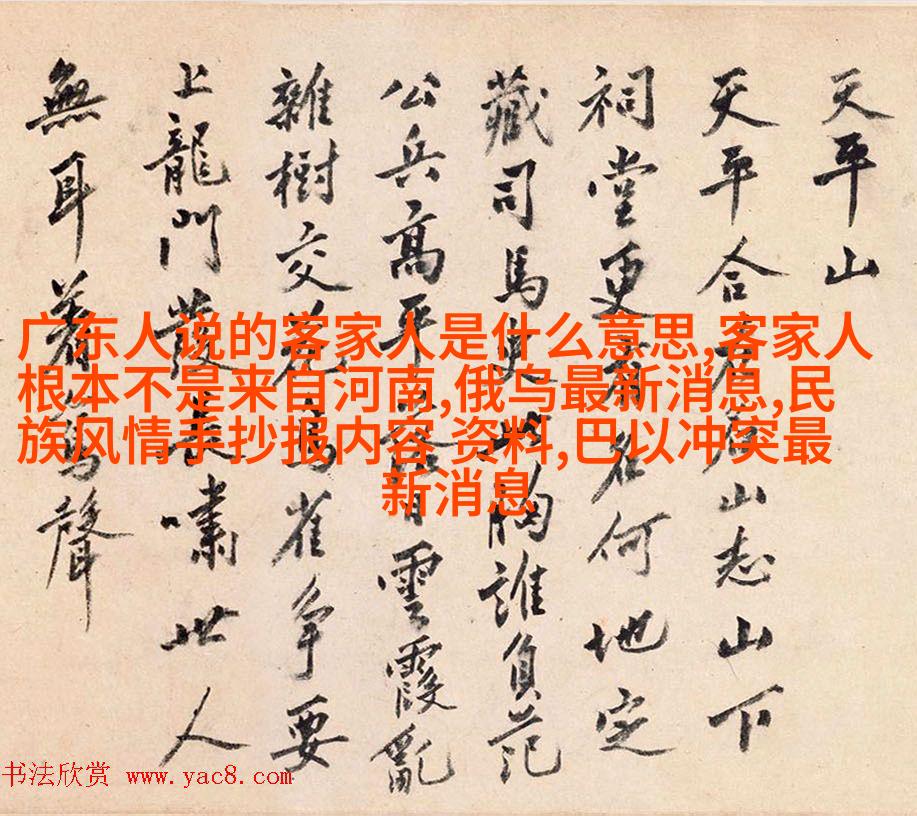 天平山
天平合山志山下
祠堂更有何地定
藏司馬史胸誰負范
公兵高平雲霞亂
雜樹交花烏雀爭要
上龍門發長嘯世人
無耳着聲
广东人说的客家人是什么意思,客家人
根本不是来自河南,俄乌最新消息,民
族风情手抄报内容 资料,巴以冲突最
新消息
书法欣赏 www.yac8.com